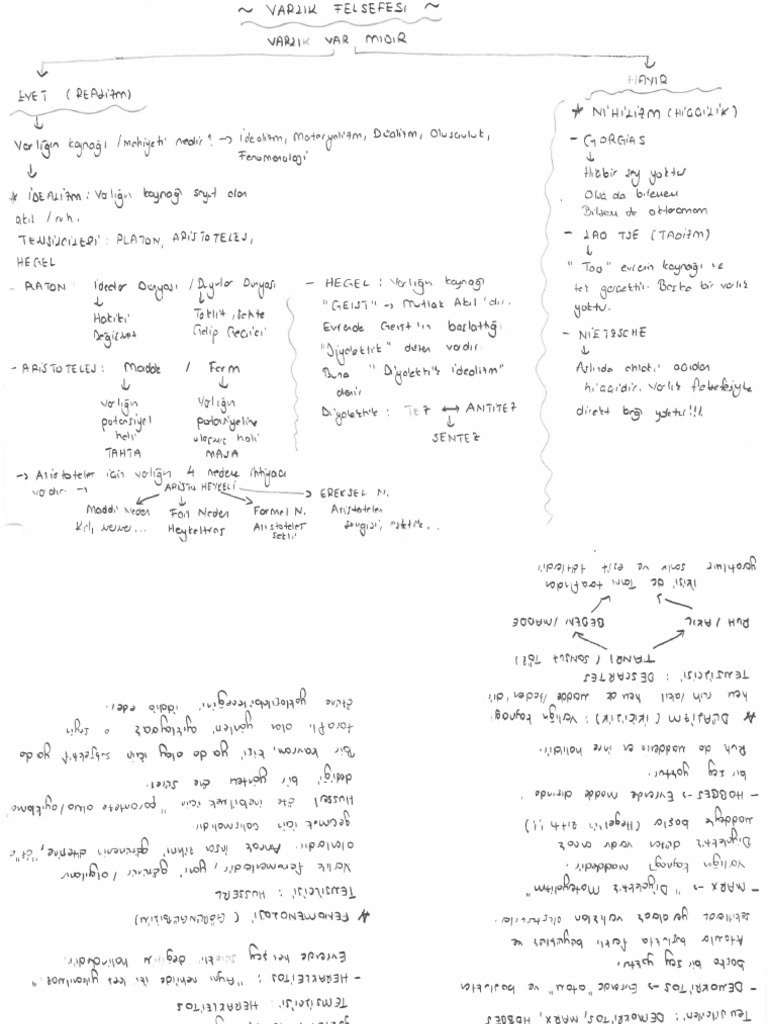 ~ VARLIK FELSEFESİ ~
VARLIK VAR MIDIR
EVET (REALİZM)
Varlığın kaynağı / mahiyeti nedir? → idealizm, Materyalizm, Düalizm, Oluşçuluk,
Fenomenoloji
* İDEALİZM: Varlığın kaynağı soyut olan
akıl / ruh.
TEMSİLCİLERİ: PLATON, ARİSTOTELES,
HEGEL
- PLATON: İdealar Dünyası / Duyular Dünyası
Hakiki
Değişmez
Taklit, sahte
Gelip Geçici
- ARİSTOTELES: Madde / Form
Varlığın
potansiyel
hali
TAHTA
Varlığın
potansiyeline
ulaşmış hali
MASA
→ Aristoteles için varlığın 4 nedene ihtiyacı
vardır. → ARİSTO HEYKELİ
Maddi Neden
Kil, mermer...
Fail Neden
Heykeltraş
Formel N.
Aristoteles
şekli
EREKSEL N.
Aristoteles
sevgisi, estetik..
- HEGEL: Varlığın kaynağı
"GEIST" → Mutlak Akıl'dır.
Evrende Geist'ın başlattığı
"Diyalektik" düzen vardır.
Buna "Diyalektik idealizm"
denir
Diyalektik: TEZ ↔ ANTİTEZ
SENTEZ
HAYIR
* NİHİLİZM (HİÇÇİLİK)
- GORGIAS
Hiçbir şey yoktur
Olsa da bilinemez
Bilsem de aktaramam
- LAO TSE (TAOİZM)
"Tao" evrenin kaynağı ve
tek gerçektir. Başka bir varlık
yoktur.
- NIETZSCHE
Aslında ahlaki açıdan
hiççidir. Varlık felsefesiyle
direkt bağı yoktur!!!
Temsilcileri: DEMOKRİTOS, MARX, HOBBES
- DEMOKRİTOS → Evrende "atom" ve boşluktan
başka bir şey yoktur.
Atomlar boşlukta farklı büyüklük ve
şekillerde yer alarak varlıkları oluştururlar.
- MARX → "Diyalektik Materyalizm"
Varlığın kaynağı maddedir.
Diyalektik düzen vardır ancak
maddeyle başlar (Hegel'in zıttı!!)
- HOBBES → Evrende madde dışında
bir şey yoktur.
Ruh da maddenin en ince halidir.
* DÜALİZM (İKİCİLİK): Varlığın kaynağı
hem ruh / akıl hem de madde / beden'dir
TEMSİLCİSİ: DESCARTES
TANRI (SONSUZ TÖZ)
RUH / AKIL
BEDEN / MADDE
ikisi de Tanrı tarafından
yaratılmış sonlu ve eşit tözlerdir
TEMSİLCİSİ: HERAKLEİTOS
- HERAKLEITOS: "Aynı nehirde iki kez yıkanılmaz."
Evrende her şey sürekli değişim halindedir.
* FENOMENOLOJİ (GÖRÜNGÜBİLİM)
TEMSİLCİSİ: HUSSERL
Varlık fenomenlerdir, yani görünür / algılanır
olanlardır. Ancak insan zihni görünenin ötesine, "öz"e
geçmek için çalışmalıdır.
Husserl öze inebilmek için "paranteze alma / ayıklama"
dediği bir yöntem öne sürer.
Bir kavram, kişi ya da olay için subjektif ya da
taraflı olan yönleri ayıklayarak o şeyin
özüne yaklaşılabileceğini iddia eder.